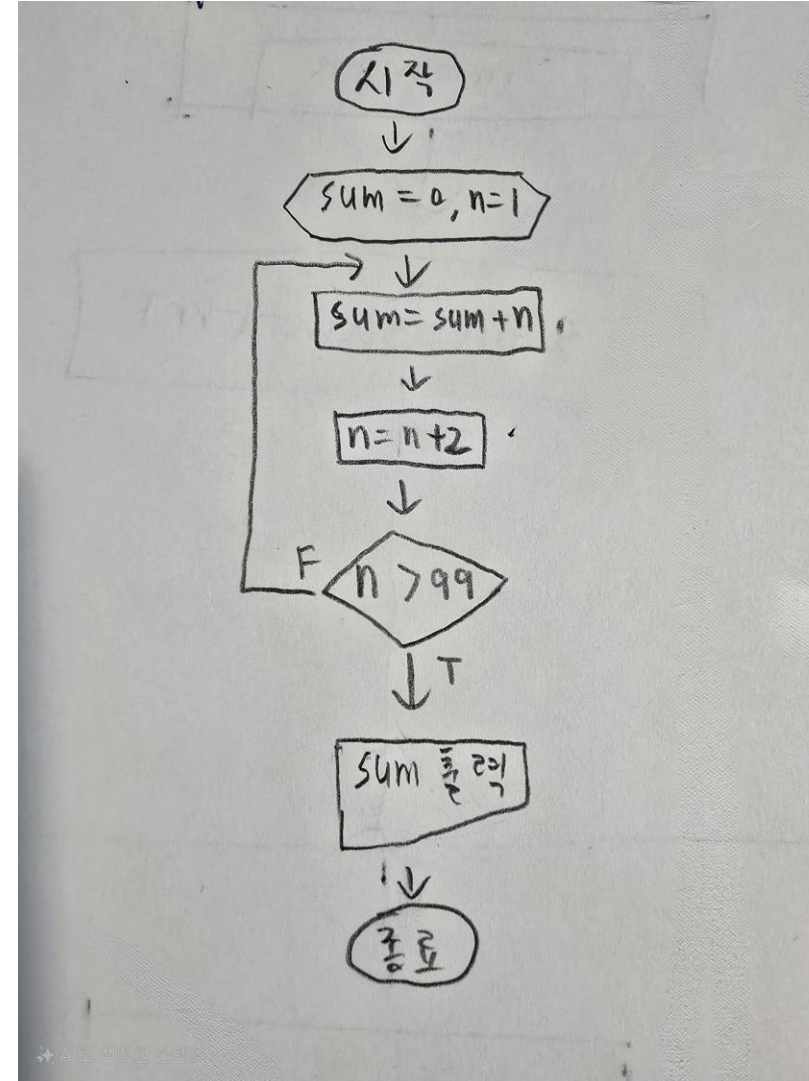 시작
sum = 0, n=1
sum = sum + n
n = n + 2
F
n > 99
T
sum 출력
종료